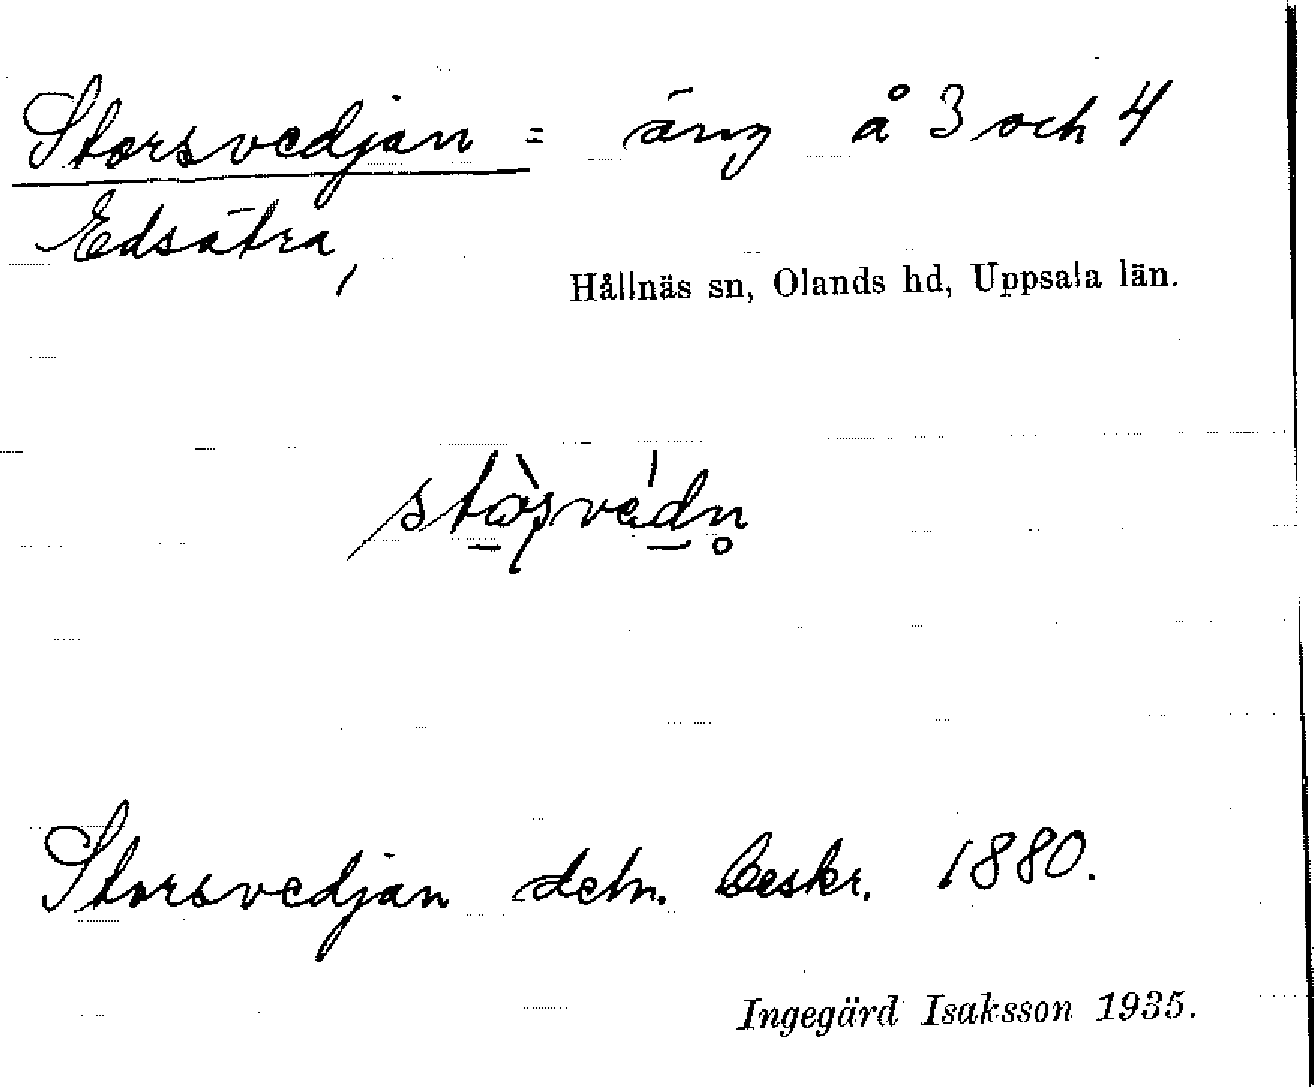 Storsvedjan = äng å 3 och 4
Edsätra,
Hållnäs sn, Olands hd, Uppsala län.
Storsvedjan detn. beskr. 1880.
Ingegärd Isaksson 1935.